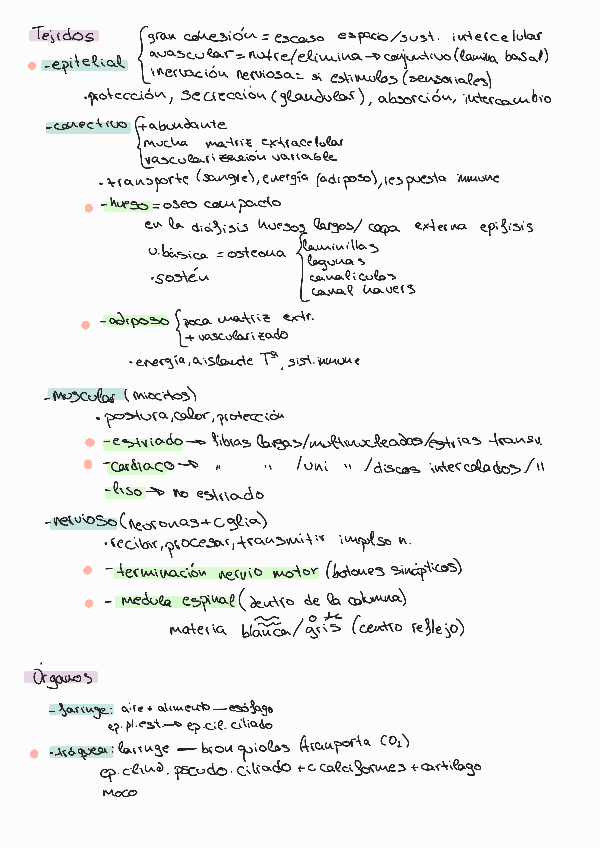 Tejidos
gran cohesión = escaso espacio/sust. intercelular
-epitelial
avascular = nutre/elimina → conjuntivo (lamina basal)
inervación nerviosa = si estimulos (sensoriales)
·protección, secrección (glandular), absorción, intercambio
-conectivo
+abundante
mucha matriz extracelular
vascularización variable
·transporte (sangre), energía (adiposo), respuesta inmune
-hueso = oseo compacto
en la diáfisis huesos largos/ capa externa epifisis
u. básica = osteona
laminillas
lagunas
canaliculos
canal havers
·sostén
-adiposo
poca matriz extr.
+ vascularizado
·energía, aislante Tª, sist. inmune
-muscular (miocitos)
·postura, calor, protección
-estriado → fibras largas/multinucleadas/estrias transv.
-cardiaco → " " /uni " /discos intercalados/"
-liso → no estriado
-nervioso (neuronas + c glia)
·recibir, procesar, transmitir implso n.
-terminación nervio motor (botones sinápticos)
- medula espinal (dentro de la columna)
materia blanca/gris (centro reflejo)
Órganos
-faringe: aire + alimento — esófago
ep. pl. est → ep. cil. ciliado
-tráquea: laringe — bronquiolos (transporta CO2)
ep. cilind. pseudo. ciliado + c calciformes + cartilago
moco